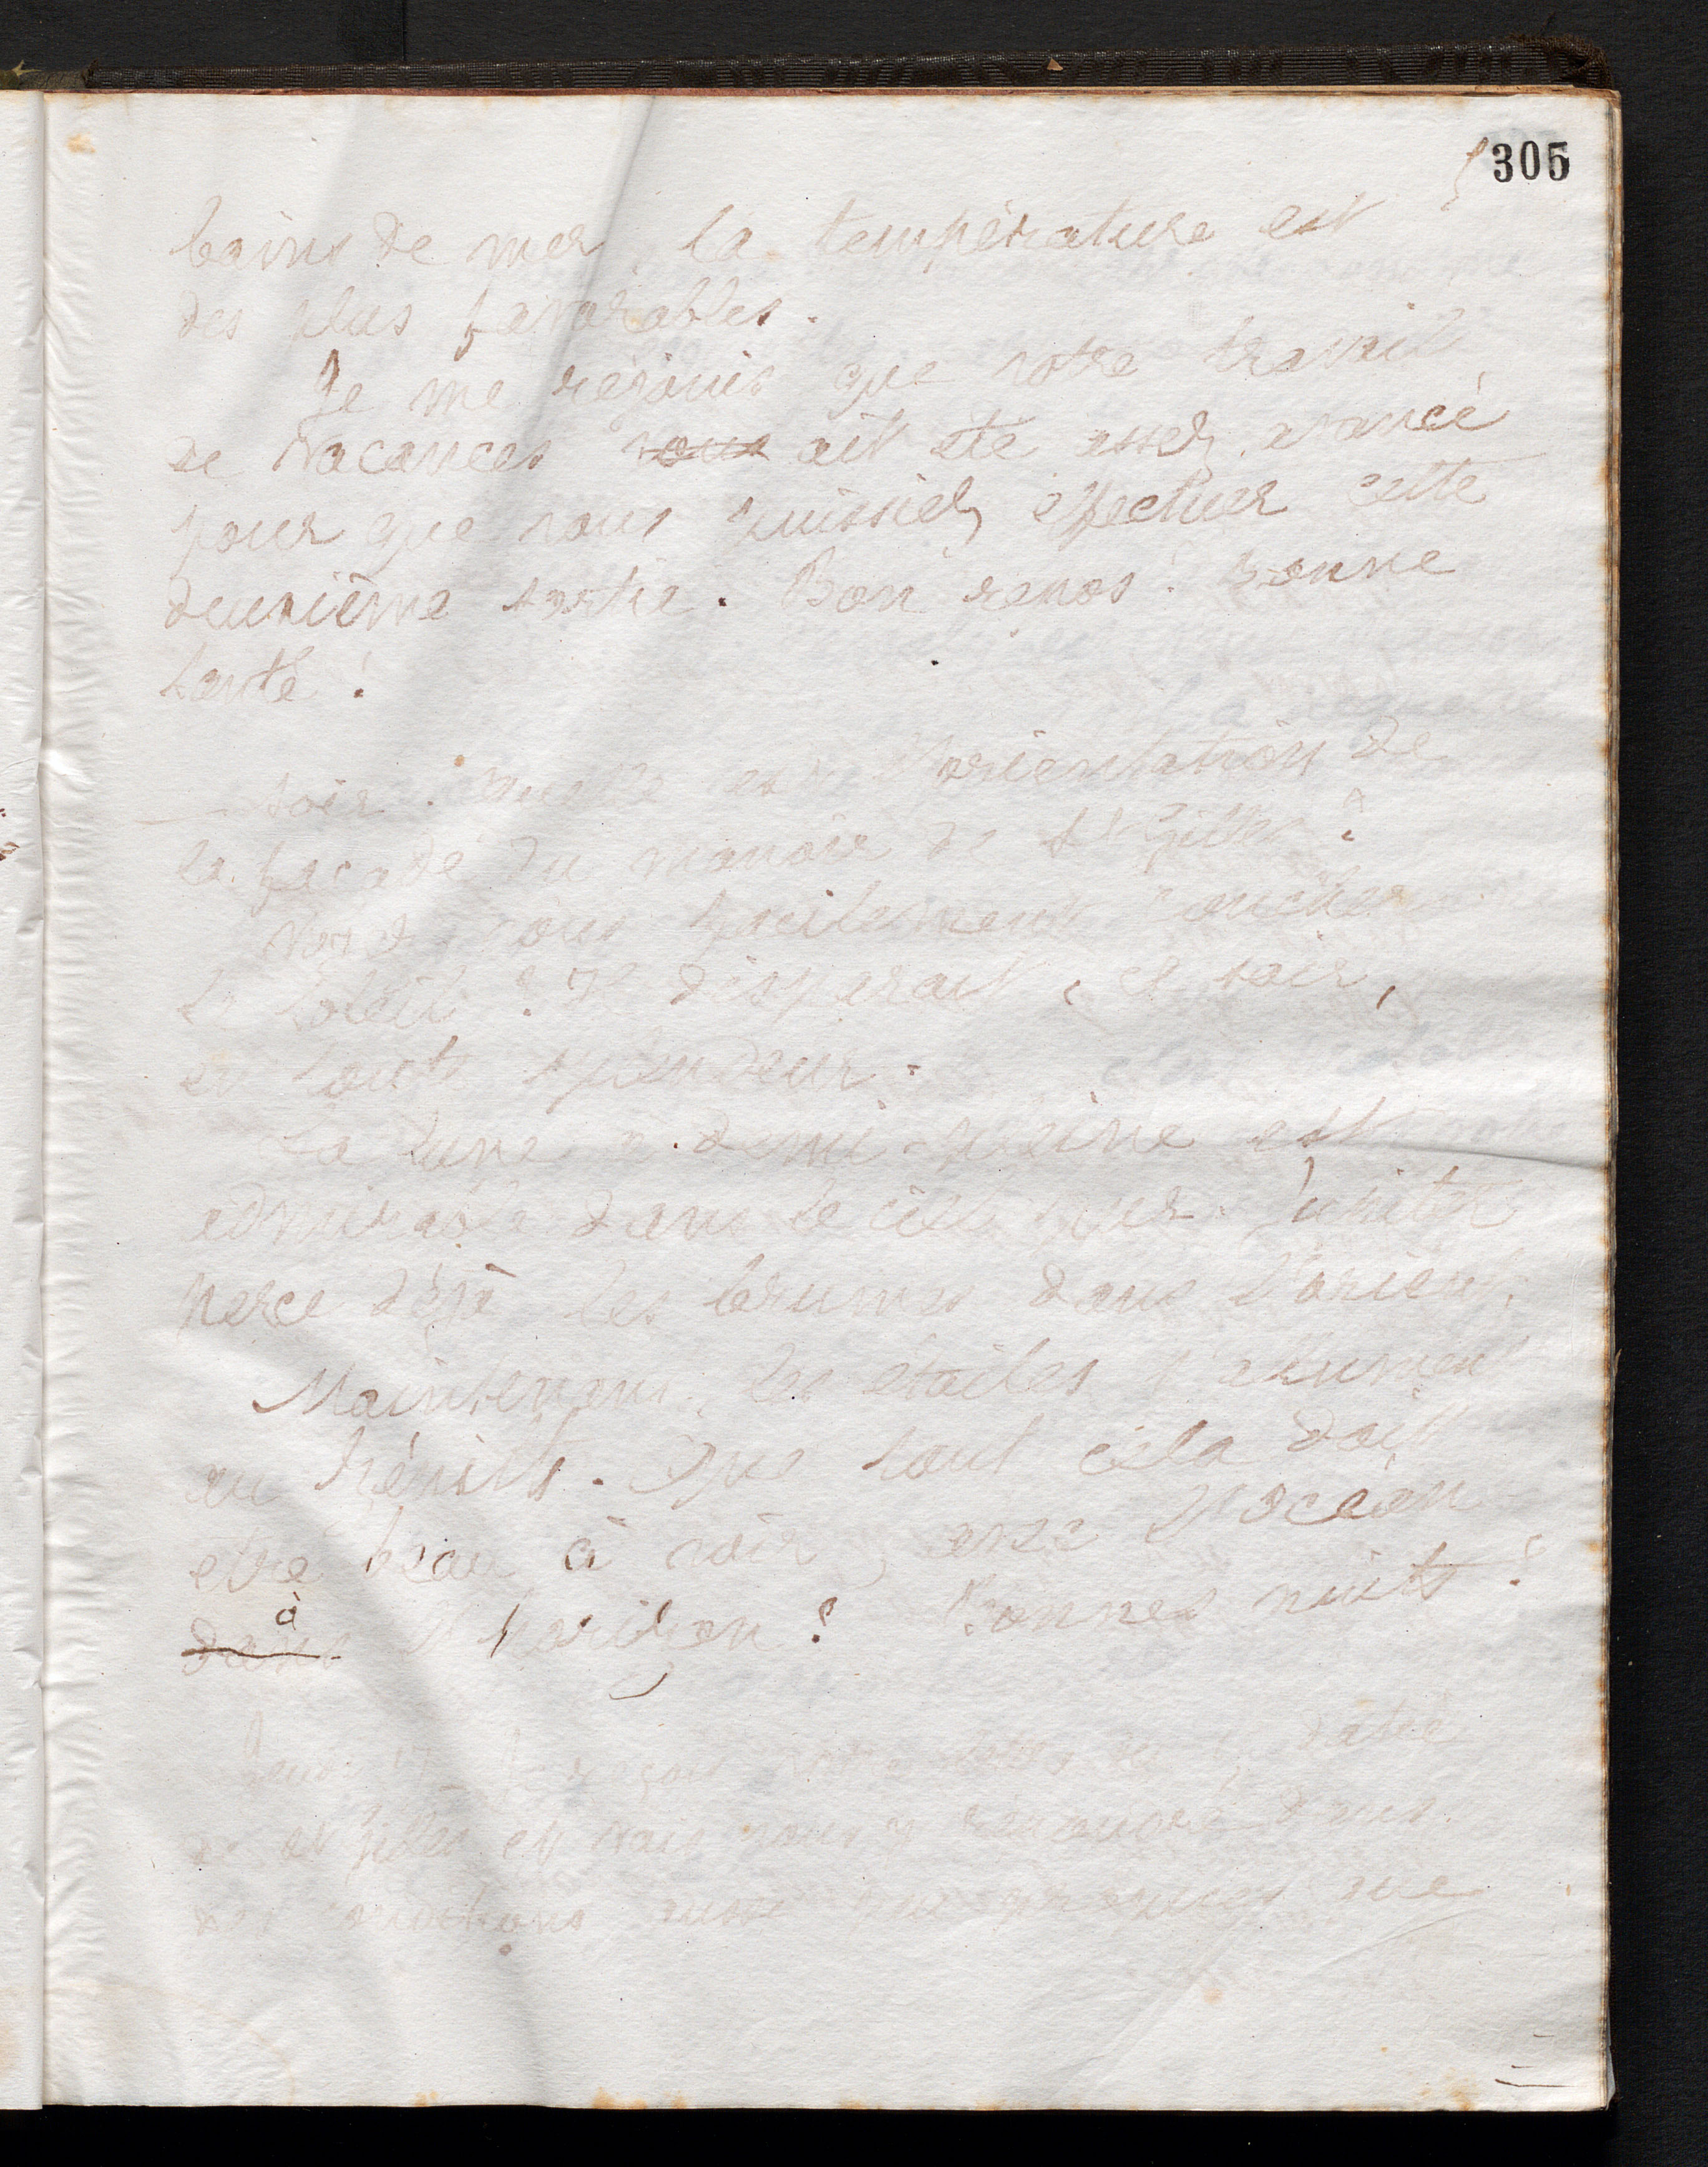 305
bains de mer la température est
des plus favorables.
Je me réjouis que votre travail
de vacances vous ait été assez avancé
pour que vous puissiez effectuer cette
deuxième sortie. Bon repos! Bonne
santé!
soir. Quelle est l'orientation de
la façade du manoir de St Gilles?
vous facilement coucher
le soleil? Il disparait, ce soir,
en toute splendeur.
La lune à demi-pleine est
admirable dans le ciel pur. Jupiter
perce déjà les brumes dans l'orient.
Maintenant, les étoiles s'allument
au zénith. Que tout cela doit
etre beau à voir, avec l'océan
à
dans l'horizon! Bonnes nuits!
Je reçois votre datée
de St Gilles et vais vous y dans
des aussi que